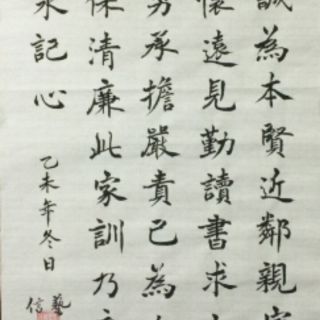 誠為本賢近鄰親
懷遠見勤讀書求
勇承擔嚴責己為
保清廉此家訓乃
永記心
乙未年冬日
藝
信